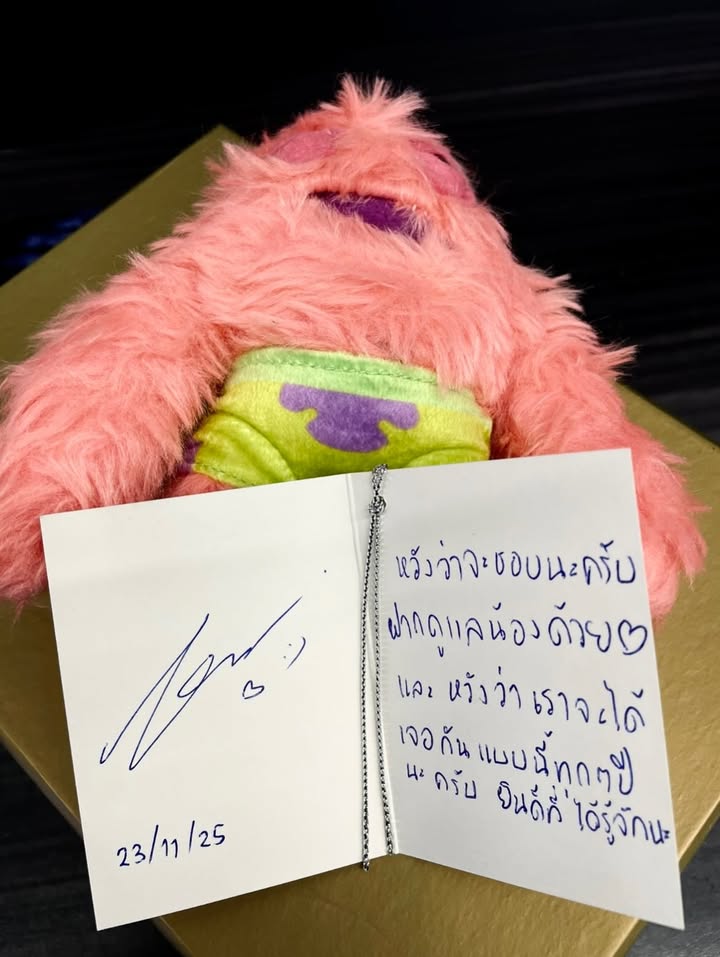 :)
♡
23/11/25
หวังว่าจะชอบนะครับ
ฝากดูแลน้องด้วย♡
และ หวังว่า เราจะได้
เจอกัน แบบนี้ทุกๆปี
นะ ครับ ยินดีที่ ได้รู้จักนะ